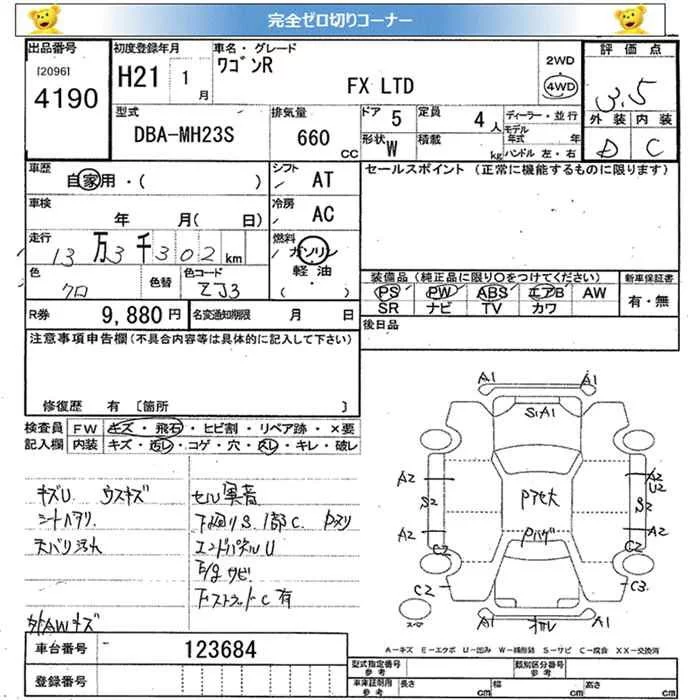 完全ゼロ切りコーナー
出品番号 初度登録年月 車名・グレード 評価点
[2096] 4190 H21 1月 ワゴンR FX LTD 2WD 4WD 3.5
型式 排気量 ドア 5 定員 4人 ディーラー・並行 外装 内装
DBA-MH23S 660cc 形状 W 積載 kg モデル年式 年 ハンドル 左・右 D C
車歴 シフト セールスポイント (正常に機能するものに限ります)
自家用・( ) AT
車検 冷房
年 月( 日) AC
走行 燃料
13万3千302km ガソリン
色 色替 色コード 軽油 装備品 (純正品に限り○をつけてください) 新車保証書
クロ ZJ3 ( ) PS PW ABS エアB AW 有・無
SR ナビ TV カワ
R券 9,880円 名変通知期限 月 日 後日品
注意事項申告欄(不具合内容等は具体的に記入して下さい)
修復歴 有 [箇所 ]
検査員 FW キズ・飛石・ヒビ割・リペア跡・×要
記入欄 内装 キズ・汚レ・コゲ・穴・スレ・キレ・破レ
キズU ウスキズ セル異音
シートヘタリ 下回りS.1部C.
天バリ汚れ エンドパネルU
サビ
C有
外AWキズ
A1 A1
S1A1
A2 A2
U2
S2 S2
Pアセ大
Pハゲ
A2 A2
C2 C2
C2 C3
A1 A1
車台番号 123684
A-キズ E-エクボ U-凹み W-補修跡 S-サビ C-腐食 XX-交換済
登録番号 型式指定番号 参考 類別区分番号 参考
車庫証明用 参考 長さ cm 幅 cm 高さ cm